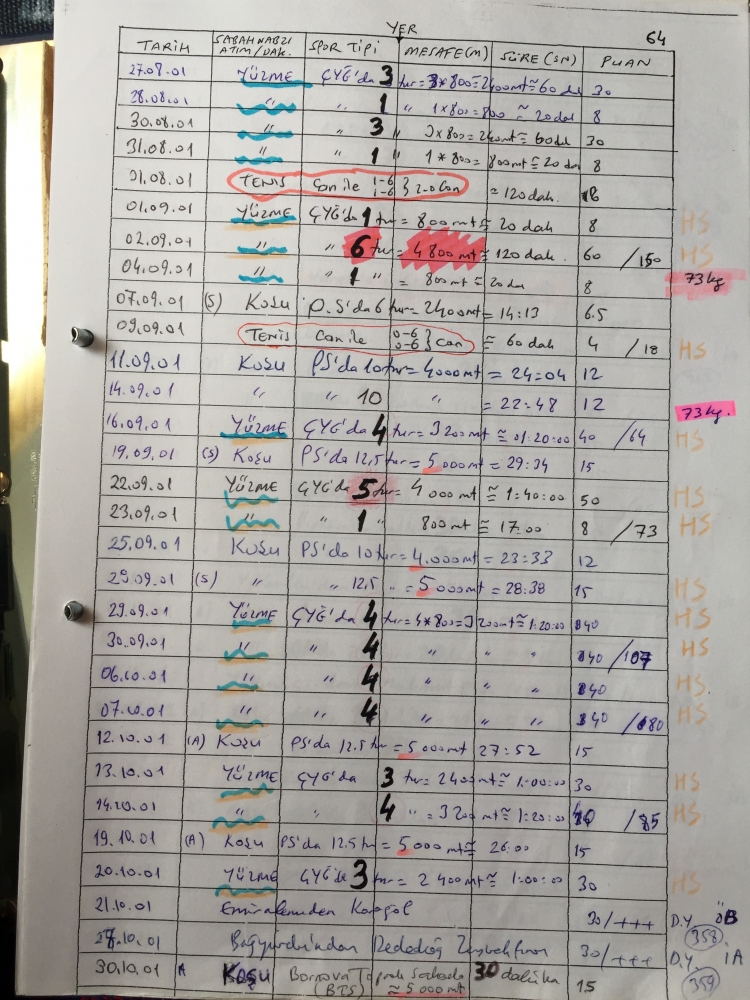 YER
64
TARİH SABAH NABZI ATIM/DAK. SPOR TİPİ MESAFE(M) SÜRE(SN) PUAN
27.08.01 YÜZME ÇYG'da 3 tur = 3*800=2400mt ≅ 60 dak 30
28.08.01 " " 1 " 1*800=800 ≅ 20 dak 8
30.08.01 " " 3 " 3*800=2400mt ≅ 60 dak 30
31.08.01 " " 1 " 1*800=800mt ≅ 20 dak 8
31.08.01 TENİS Can ile 1-6 1-6 } 2-0 Can ≅ 120 dak.
01.09.01 YÜZME ÇYG'da 1 tur = 800mt ≅ 20 dak 8 HS
02.09.01 " " 6 tur = 4800mt ≅ 120 dak. 60 /150 HS
04.09.01 " " 1 " = 800mt ≅ 20 dak 8 73 kg
07.09.01 (S) Koşu P.S'da 6 tur = 2400mt = 14:13 6.5
09.09.01 TENİS Can ile 0-6 0-6 } Can ≅ 60 dak 4 /18 HS
11.09.01 Koşu PS'da 10 tur = 4000mt = 24:04 12
14.09.01 " " 10 " = 22:48 12
16.09.01 YÜZME ÇYG'da 4 tur = 3200mt ≅ 01:20:00 40 /64 73 kg. HS
19.09.01 (S) Koşu PS'da 12,5 tur = 5000mt = 29:34 15
22.09.01 YÜZME ÇYG'da 5 tur = 4000mt ≅ 1:40:00 50 HS
23.09.01 " " 1 " 800mt ≅ 17:00 8 /73 HS
25.09.01 Koşu PS'da 10 tur = 4.000mt = 23:33 12
(S) " " 12,5 " = 5000mt = 28:38 15 HS
29.09.01 YÜZME ÇYG'da 4 tur = 4*800=3200mt ≅ 1:20:00 40 HS
30.09.01 " " 4 " " " 40 /107 HS
06.10.01 " " 4 " " " 40 HS
07.10.01 " " 4 " " " 40 /80 HS
12.10.01 (A) Koşu PS'da 12.5 tur = 5000mt 27:52 15
13.10.01 YÜZME ÇYG'da 3 tur = 2400mt ≅ 1:00:00 30 HS
14.10.01 " " 4 " = 3200mt ≅ 1:20:00 40 /85 HS
19.10.01 (A) Koşu PS'da 12.5 tur = 5000mt ≅ 26:00 15
20.10.01 YÜZME ÇYG'da 3 tur = 2400mt ≅ 1:00:00 30 HS
21.10.01 30/+++ D.Y. ÖB
358
10.01 30/+++ D.Y. İA
359
30.10.01 A Koşu Bornova Toprak Sahada 30 dakika 15
(BTS) ≅ 5000mt